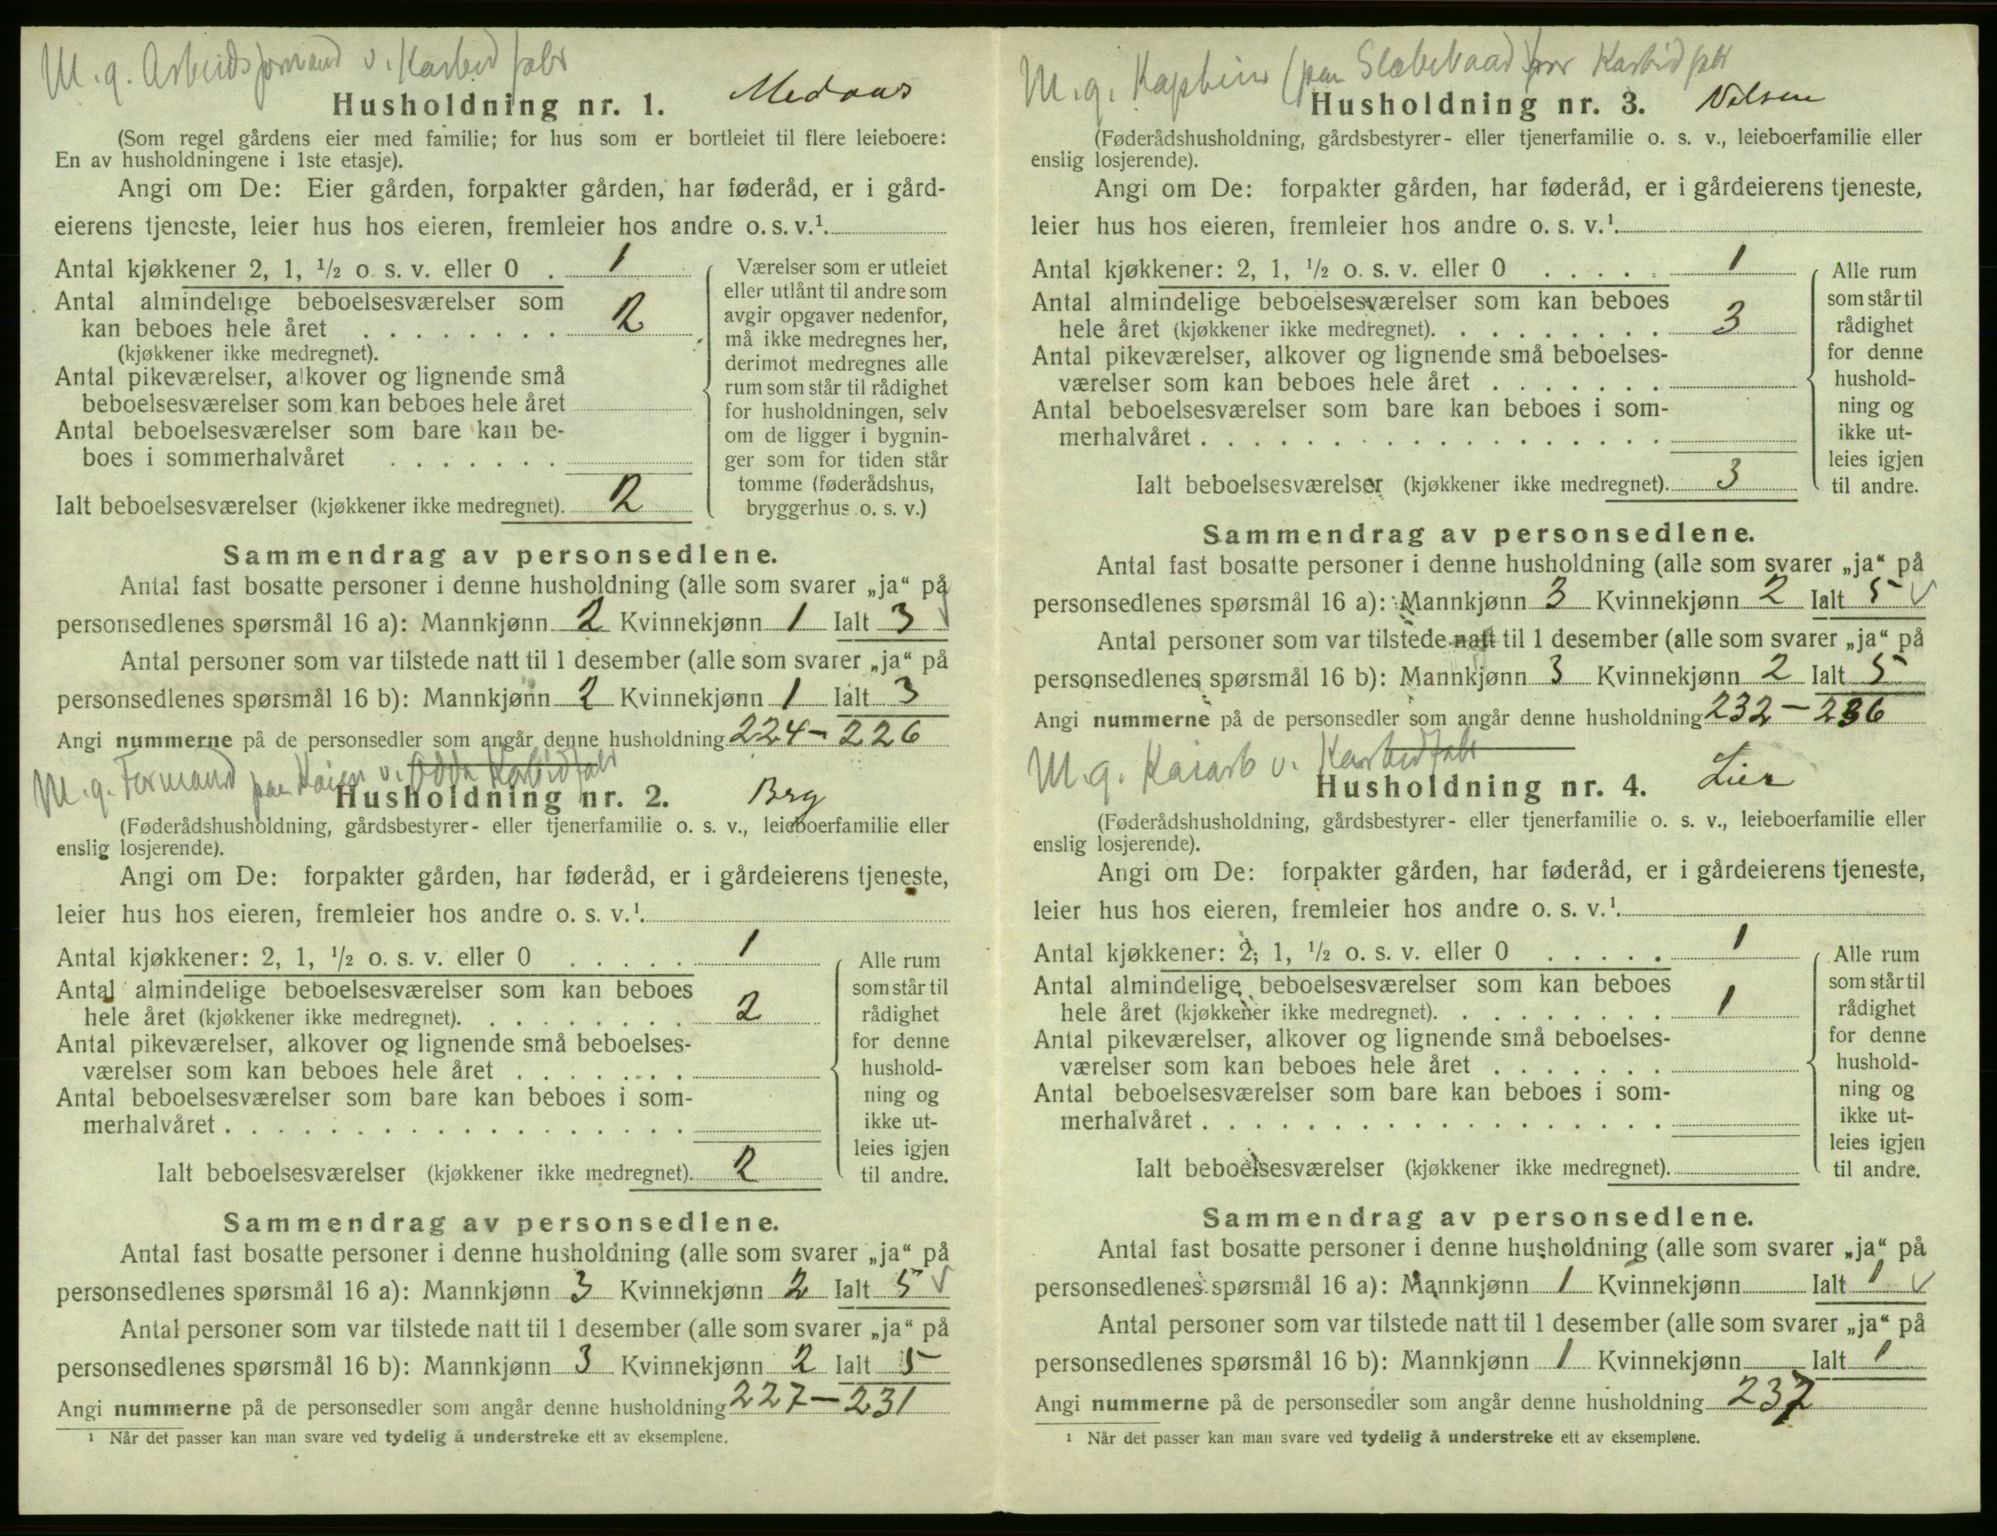 M. g. Arbeidsformand v. Karbidfabr
Husholdning nr. 1. Medaas
(Som regel gårdens eier med familie; for hus som er bortleiet til flere leieboere:
En av husholdningene i 1ste etasje).
Angi om De: Eier gården, forpakter gården, har føderåd, er i gård-
eierens tjeneste, leier hus hos eieren, fremleier hos andre o. s. v.¹
Antal kjøkkener 2, 1, ½ o. s. v. eller 0 . 1
Antal almindelige beboelsesværelser som
kan beboes hele året . . . . . . . 2
(kjøkkener ikke medregnet).
Antal pikeværelser, alkover og lignende små
beboelsesværelser som kan beboes hele året
Antal beboelsesværelser som bare kan be-
boes i sommerhalvåret . . . . . .
Ialt beboelsesværelser (kjøkkener ikke medregnet). 2
Værelser som er utleiet
eller utlånt til andre som
avgir opgaver nedenfor,
må ikke medregnes her,
derimot medregnes alle
rum som står til rådighet
for husholdningen, selv
om de ligger i bygnin-
ger som for tiden står
tomme (føderådshus,
bryggerhus o. s. v.)
Sammendrag av personsedlene.
Antal fast bosatte personer i denne husholdning (alle som svarer „ja“ på
personsedlenes spørsmål 16 a): Mannkjønn 2 Kvinnekjønn 1 Ialt 3 ✓
Antal personer som var tilstede natt til 1 desember (alle som svarer „ja“ på
personsedlenes spørsmål 16 b): Mannkjønn 2 Kvinnekjønn 1 Ialt 3
Angi nummerne på de personsedler som angår denne husholdning 224 – 226
M. g. Formand paa Kaien v. Odda Karbidfabr
Husholdning nr. 2. Berg
(Føderådshusholdning, gårdsbestyrer- eller tjenerfamilie o. s. v., leieboerfamilie eller
enslig losjerende).
Angi om De: forpakter gården, har føderåd, er i gårdeierens tjeneste,
leier hus hos eieren, fremleier hos andre o. s. v.¹
Antal kjøkkener: 2, 1, ½ o. s. v. eller 0 . . . . . 1
Antal almindelige beboelsesværelser som kan beboes
hele året (kjøkkener ikke medregnet). . . . . . . . . 2
Antal pikeværelser, alkover og lignende små beboelses-
værelser som kan beboes hele året . . . . . . .
Antal beboelsesværelser som bare kan beboes i som-
merhalvåret . . . . . . . . . . . . . . . . . .
Ialt beboelsesværelser (kjøkkener ikke medregnet). 2
Alle rum
som står til
rådighet
for denne
hushold-
ning og
ikke ut-
leies igjen
til andre.
Sammendrag av personsedlene.
Antal fast bosatte personer i denne husholdning (alle som svarer „ja“ på
personsedlenes spørsmål 16 a): Mannkjønn 3 Kvinnekjønn 2 Ialt 5 ✓
Antal personer som var tilstede natt til 1 desember (alle som svarer „ja“ på
personsedlenes spørsmål 16 b): Mannkjønn 3 Kvinnekjønn 2 Ialt 5
Angi nummerne på de personsedler som angår denne husholdning 227 – 231
¹ Når det passer kan man svare ved tydelig å understreke ett av eksemplene.
M. g. Kaptein (paa Slæbebaad) for Karbidfabr
Husholdning nr. 3. Nilsen
(Føderådshusholdning, gårdsbestyrer- eller tjenerfamilie o. s. v., leieboerfamilie eller
enslig losjerende).
Angi om De: forpakter gården, har føderåd, er i gårdeierens tjeneste,
leier hus hos eieren, fremleier hos andre o. s. v.¹
Antal kjøkkener: 2, 1, ½ o. s. v. eller 0 . . . . . 1
Antal almindelige beboelsesværelser som kan beboes
hele året (kjøkkener ikke medregnet). . . . . . . . . 3
Antal pikeværelser, alkover og lignende små beboelses-
værelser som kan beboes hele året . . . . . . .
Antal beboelsesværelser som bare kan beboes i som-
merhalvåret . . . . . . . . . . . . . . . . . .
Ialt beboelsesværelser (kjøkkener ikke medregnet). 3
Alle rum
som står til
rådighet
for denne
hushold-
ning og
ikke ut-
leies igjen
til andre.
Sammendrag av personsedlene.
Antal fast bosatte personer i denne husholdning (alle som svarer „ja“ på
personsedlenes spørsmål 16 a): Mannkjønn 3 Kvinnekjønn 2 Ialt 5 ✓
Antal personer som var tilstede natt til 1 desember (alle som svarer „ja“ på
personsedlenes spørsmål 16 b): Mannkjønn 3 Kvinnekjønn 2 Ialt 5
Angi nummerne på de personsedler som angår denne husholdning 232 – 236
M. g. Kaiarb v. Karbidfabr
Husholdning nr. 4. Lier
(Føderådshusholdning, gårdsbestyrer- eller tjenerfamilie o. s. v., leieboerfamilie eller
enslig losjerende).
Angi om De: forpakter gården, har føderåd, er i gårdeierens tjeneste,
leier hus hos eieren, fremleier hos andre o. s. v.¹
Antal kjøkkener: 2, 1, ½ o. s. v. eller 0 . . . . . 1
Antal almindelige beboelsesværelser som kan beboes
hele året (kjøkkener ikke medregnet). . . . . . . . . 1
Antal pikeværelser, alkover og lignende små beboelses-
værelser som kan beboes hele året . . . . . . .
Antal beboelsesværelser som bare kan beboes i som-
merhalvåret . . . . . . . . . . . . . . . . . .
Ialt beboelsesværelser (kjøkkener ikke medregnet).
Alle rum
som står til
rådighet
for denne
hushold-
ning og
ikke ut-
leies igjen
til andre.
Sammendrag av personsedlene.
Antal fast bosatte personer i denne husholdning (alle som svarer „ja“ på
personsedlenes spørsmål 16 a): Mannkjønn 1 Kvinnekjønn Ialt 1 ✓
Antal personer som var tilstede natt til 1 desember (alle som svarer „ja“ på
personsedlenes spørsmål 16 b): Mannkjønn 1 Kvinnekjønn Ialt 1
Angi nummerne på de personsedler som angår denne husholdning 237
¹ Når det passer kan man svare ved tydelig å understreke ett av eksemplene.